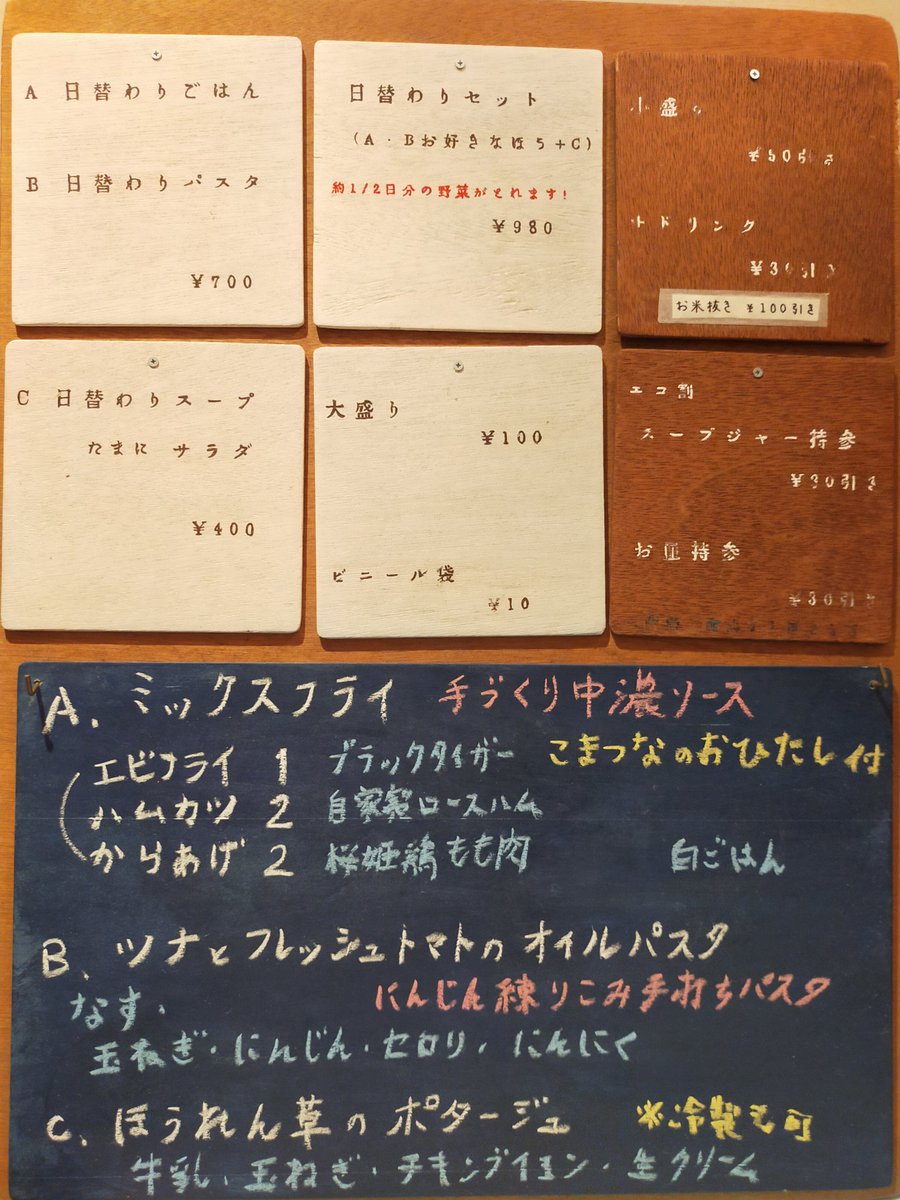 A 日替わりごはん
B 日替わりパスタ
¥700
日替わりセット
(A・Bお好きなほう+C)
約1/2日分の野菜がとれます!
¥980
小盛り
¥50引き
ドリンク
¥30引き
お米抜き ¥100引き
C 日替わりスープ
たまに サラダ
¥400
大盛り
¥100
ビニール袋
¥10
エコ割
スープジャー持参
¥30引き
お皿持参
¥30引き
A. ミックスフライ 手づくり中濃ソース
エビフライ 1 ブラックタイガー こまつなのおひたし付
ハムカツ 2 自家製ロースハム
からあげ 2 桜姫鶏もも肉 白ごはん
B. ツナとフレッシュトマトのオイルパスタ
なす・ にんじん練りこみ手打ちパスタ
玉ねぎ・にんじん・セロリ・にんにく
C. ほうれん草のポタージュ ※冷製も可
牛乳・玉ねぎ・チキンブイヨン・生クリーム